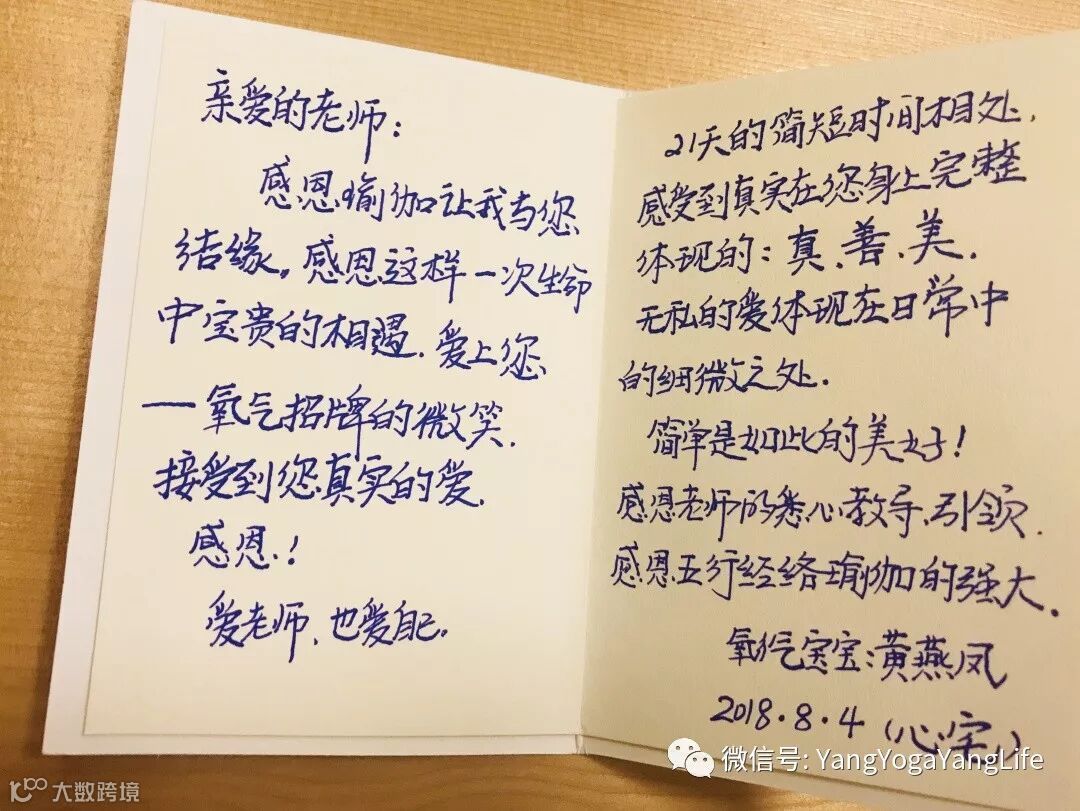 亲爱的老师：
感恩瑜伽让我与您
结缘。感恩这样一次生命
中宝贵的相遇.爱上您
一氧气招牌的微笑.
接受到您真实的爱.
感恩.！
爱老师、也爱自己。
21天的简短时间相处.
感受到真实在您身上完整
体现的：真、善、美.
无私的爱体现在日常中
的细微之处.
简单是如此的美好！
感恩老师的悉心教导、引领.
感恩五行经络瑜伽的强大.
氧气宝宝：黄燕凤
2018.8.4（心宇）
微信号: YangYogaYangLife
大数跨境